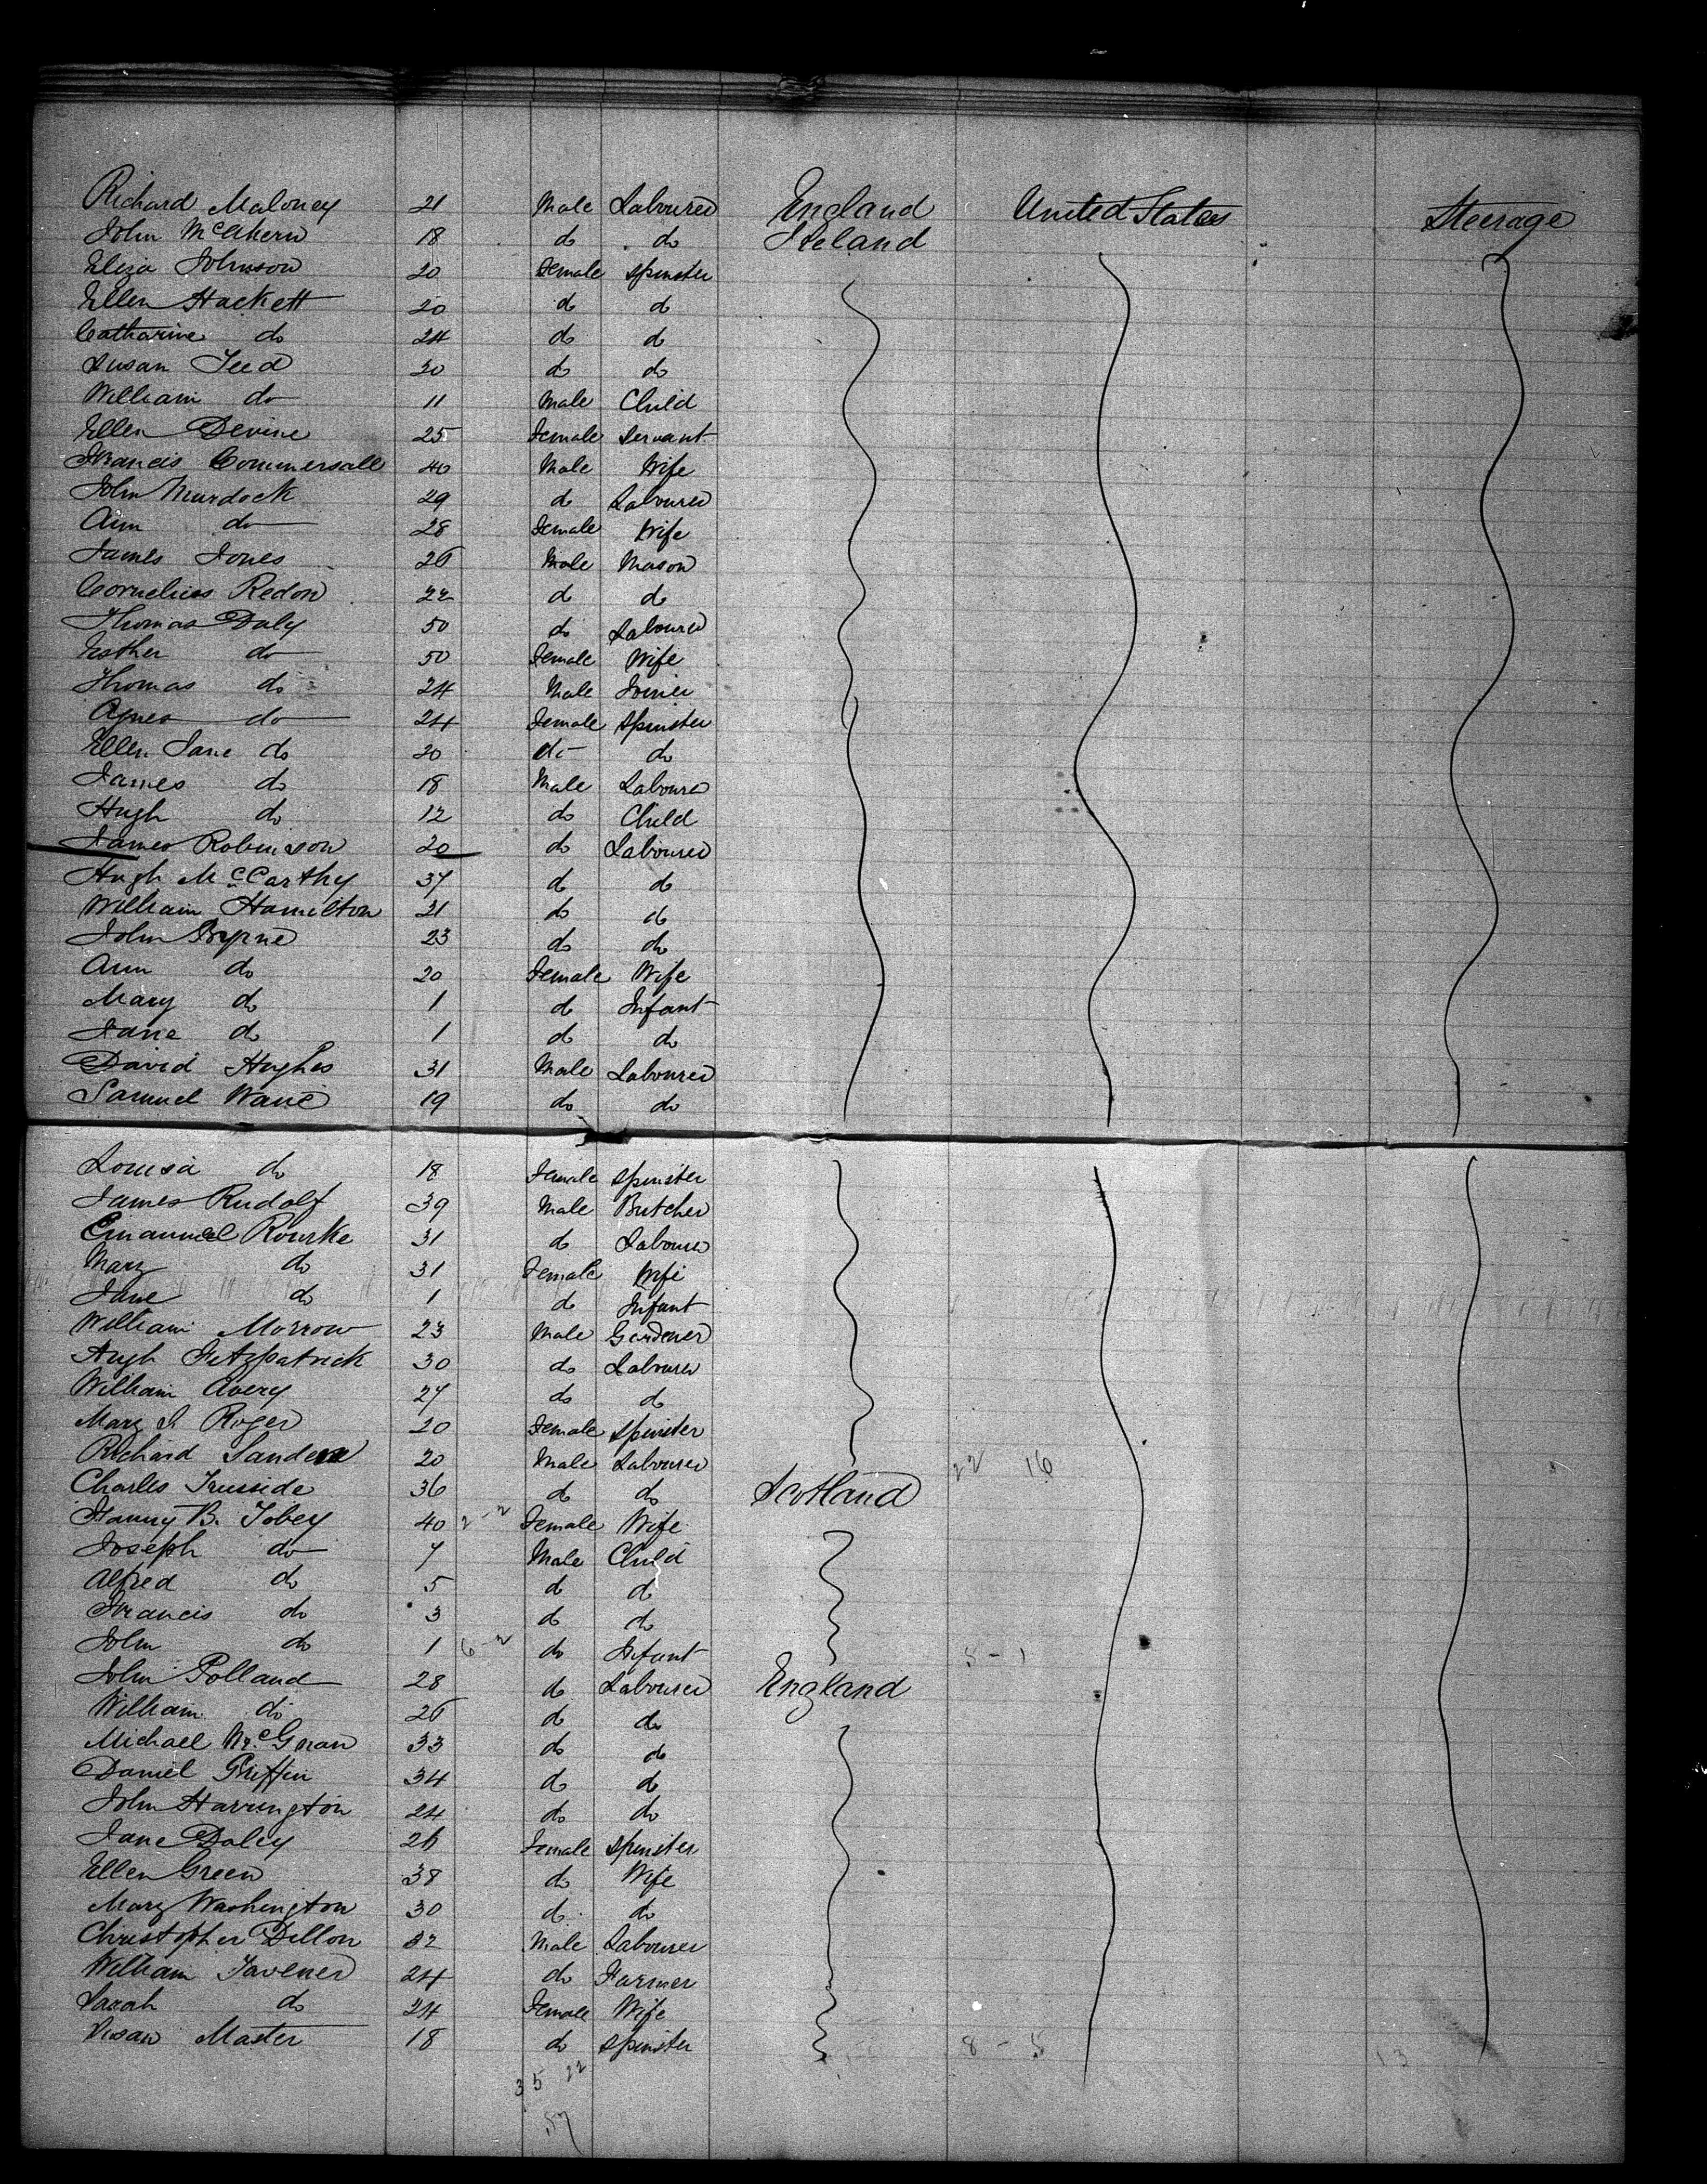 Richard Maloney 21 Male Labourer England United States Steerage
John McAhern 18 do do Ireland
Eliza Johnson 20 Female Spinster
Ellen Hackett 20 do do
Catharine do 24 do do
Susan Teed 30 do do
William do 11 Male Child
Ellen Devine 25 Female Servant
Francis Commersall 40 Male Wife
John Murdock 29 do Labourer
Ann do 28 Female Wife
James Jones 26 Male Mason
Cornelius Redon 22 do do
Thomas Daly 50 do Labourer
Esther do 50 Female Wife
Thomas do 24 Male Joiner
Agnes do 24 Female Spinster
Ellen Jane do 20 do do
James do 18 Male Labourer
Hugh do 12 do Child
James Robinson 20 do Labourer
Hugh McCarthy 37 do do
William Hamilton 21 do do
John Byrne 23 do do
Ann do 20 Female Wife
Mary do 1 do Infant
Jane do 1 do do
David Hughes 31 Male Labourer
Samuel 19 do do
Louisa do 18 Female Spinster
James Rudolf 39 Male Butcher
Emanuel Rourke 31 do Labourer
Mary do 31 Female Wife
Jane do 1 do Infant
William Morrow 23 Male Gardener
Hugh Fitzpatrick 30 do Labourer
William Avery 27 do do
Mary J Roger 20 Female Spinster
Richard 20 Male Labourer 22 16
Charles 36 do do Scotland
Fanny B. Tobey 40 2-2 Female Wife
Joseph do 7 Male Child
Alfred do 5 do do
Francis do 3 do do
John do 1 6-2 do Infant 5-1
John Polland 28 do Labourer England
William do 26 do do
Michael 33 do do
Daniel Griffin 34 do do
John Harrington 24 do do
Jane Daley 26 Female Spinster
Ellen Green 38 do Wife
Mary Washington 30 do do
Christopher Dillon 32 Male Labourer
William Tavener 24 do Farmer
Sarah do 24 Female Wife
Susan Master 18 do Spinster 8-5 13
35 22
57